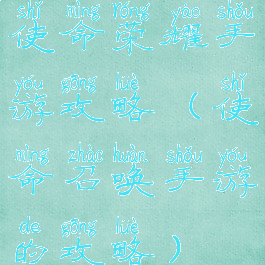 shǐ mìng róng yào shǒu
使命荣耀手
yóu gōng lüè shǐ
游攻略（使
mìng zhào huàn shǒu yóu
命召唤手游
de gōng lüè
的攻略）